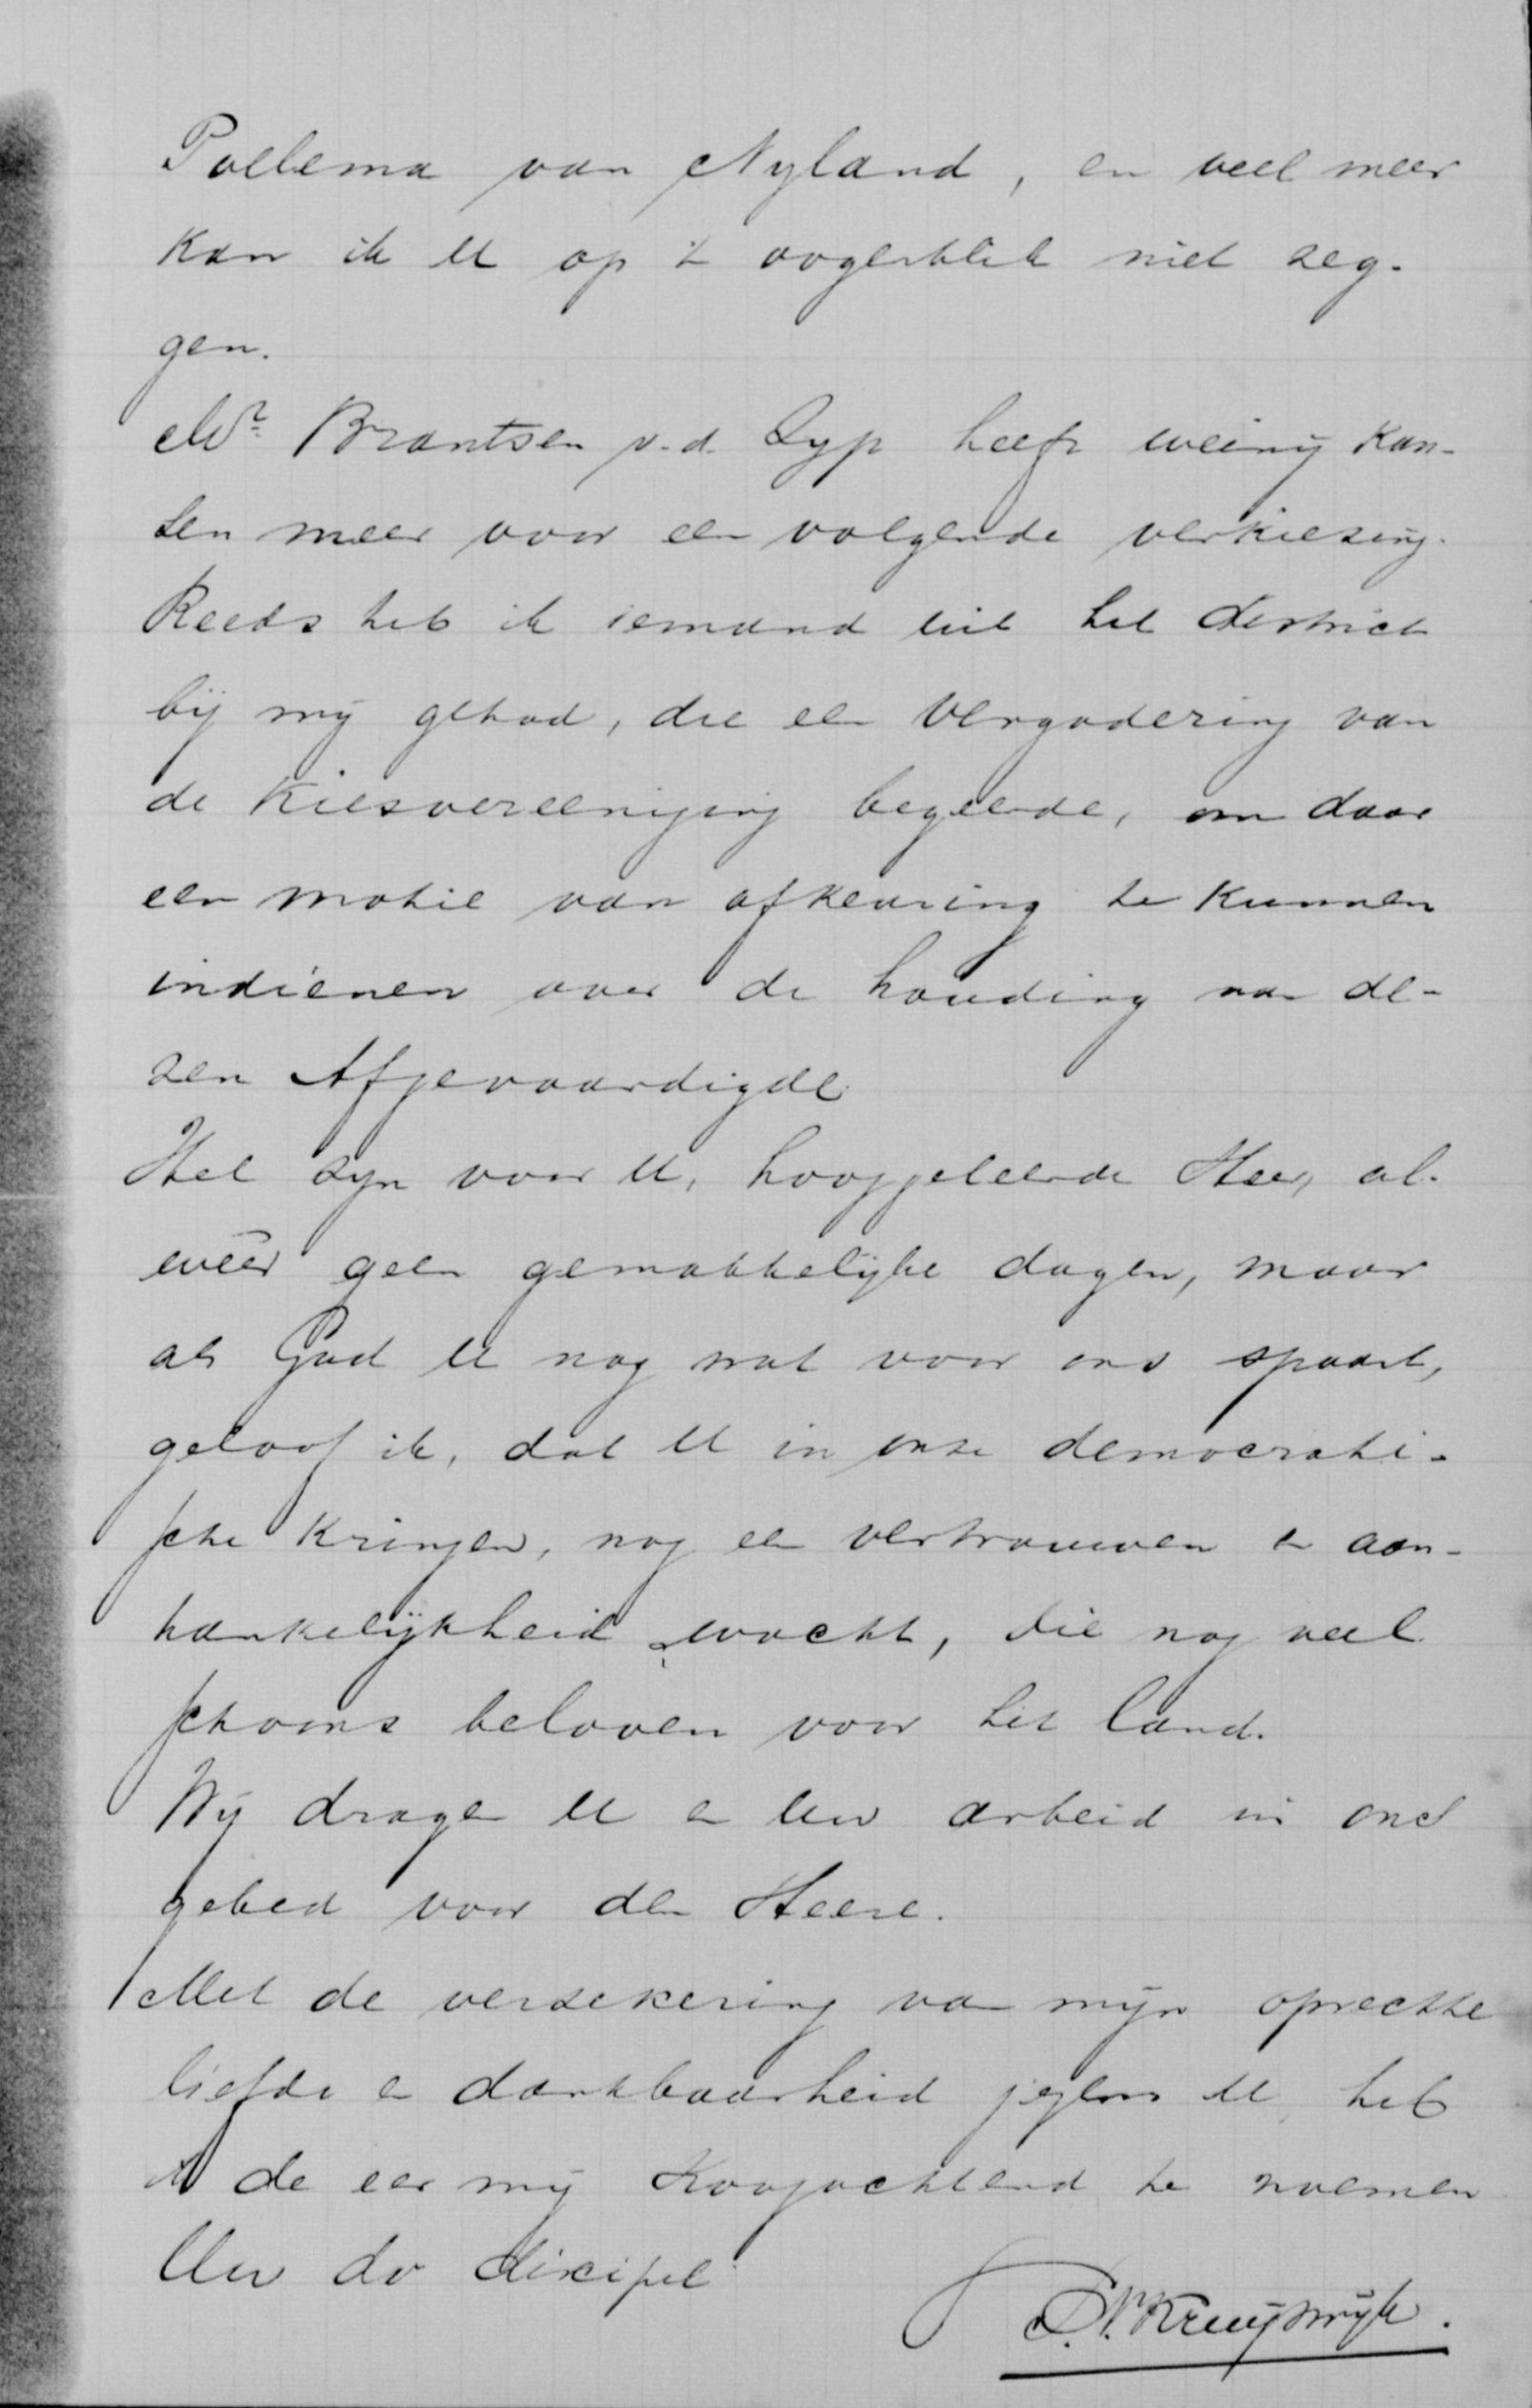 Poelema van Nyland, en veel meer
kan ik U op 't oogenblik niet zeg-
gen.
Mr. Brantsen v. d. Zyp heeft weinig kan-
sen meer voor een volgende verkiezing.
Reeds heb ik iemand uit het district
bij mij gehad, die een vergadering van
de Kiesvereeniging begeerde, om daar
een motie van afkeuring te kunnen
indienen over de houding van de-
zen Afgevaardigde.
Het zyn voor U, hooggeleerde Heer, al-
weêr geen gemakkelijke dagen, maar
als God U nog wat voor ons spaart,
geloof ik, dat U in onze democrati-
sche kringen, nog een vertrouwen en aan-
hankelijkheid wacht, die nog veel
schoons beloven voor het land.
Wij dragen U en Uw arbeid in ons
gebed voor den Heere.
Met de verzekering van mijn oprechte
liefde en dankbaarheid jegens U, heb
ik de eer mij Hoogachtend te noemen
Uw dv discipel
Kruyswyk.